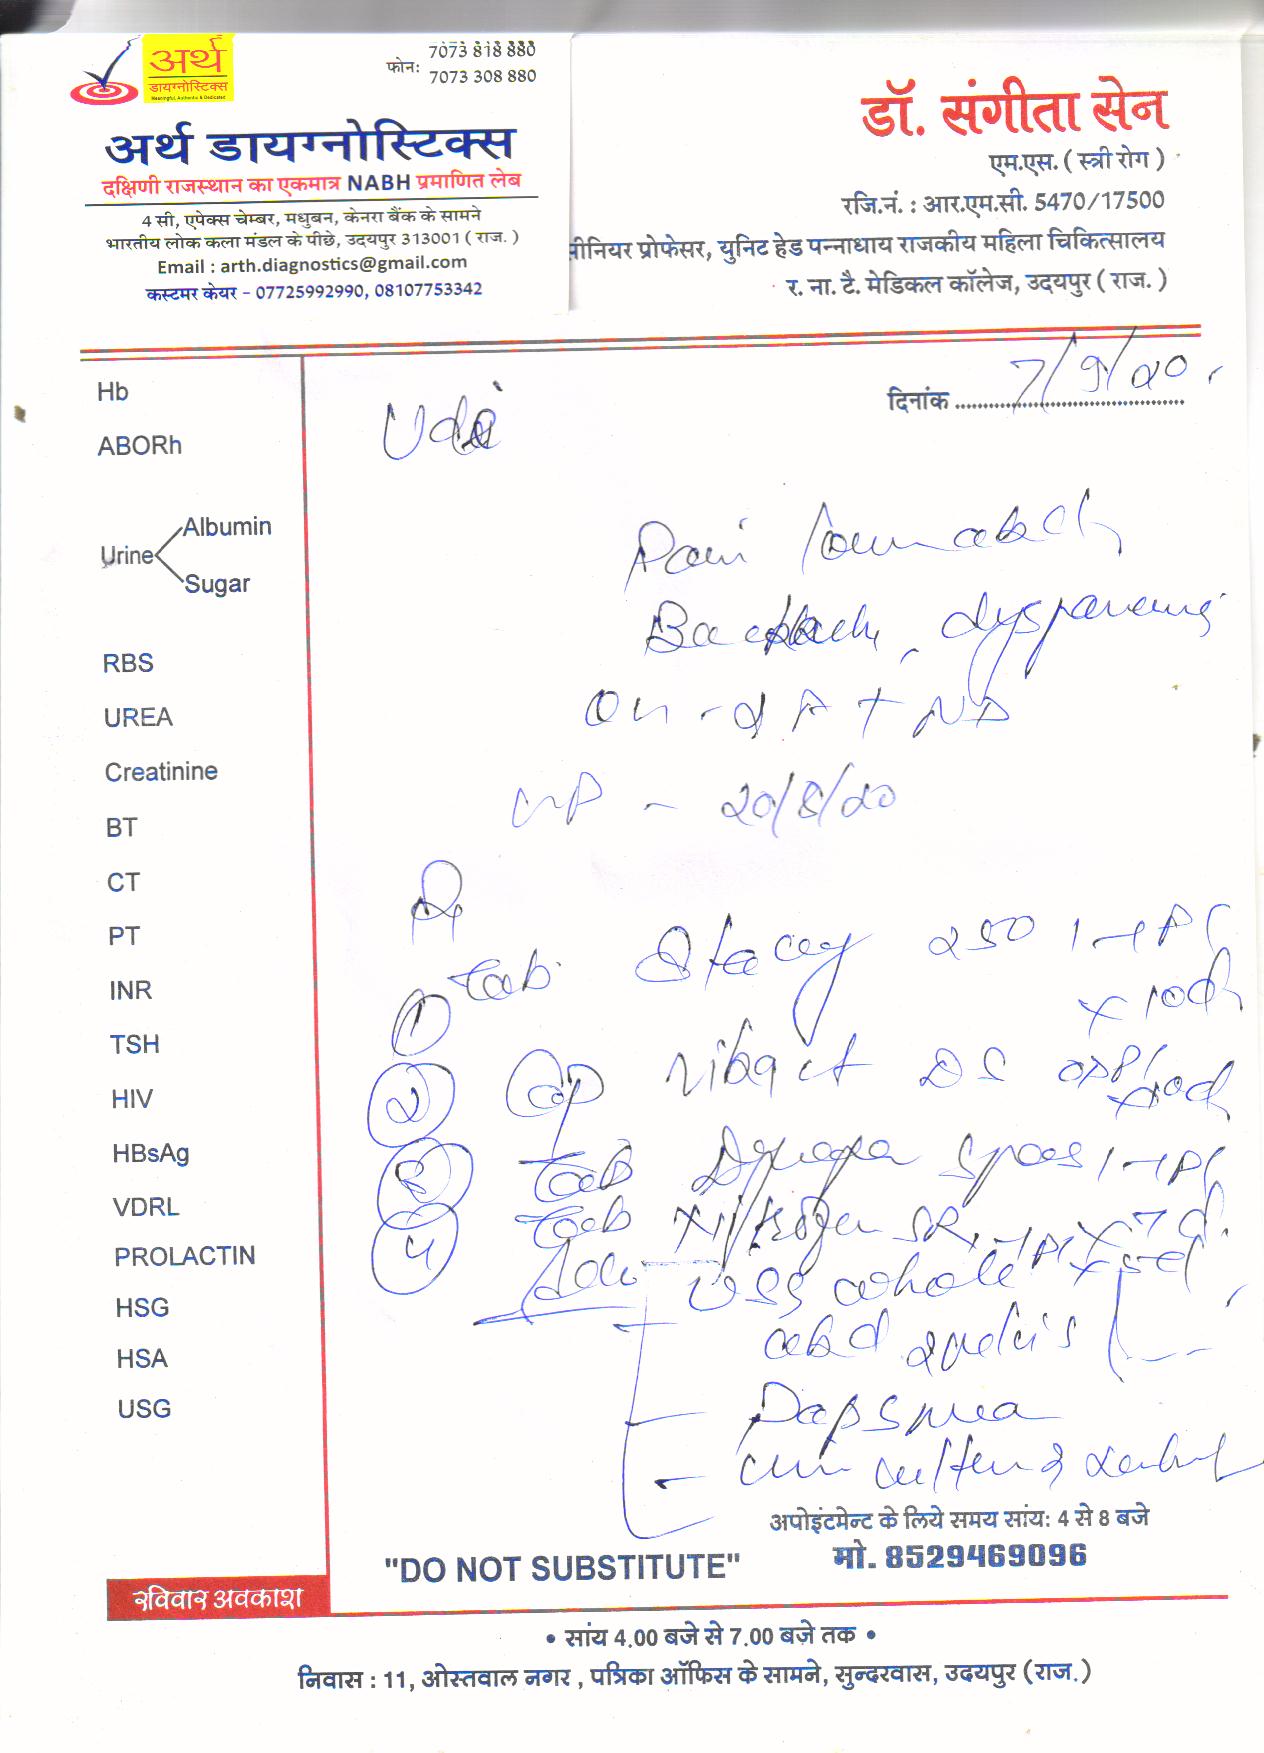 अर्थ
डायग्नोस्टिक्स
Meaningful, Authentic & Dedicated
फोन: 7073 818 880
7073 308 880
अर्थ डायग्नोस्टिक्स
दक्षिणी राजस्थान का एकमात्र NABH प्रमाणित लेब
4 सी, एपेक्स चेम्बर, मधुबन, केनरा बैंक के सामने
भारतीय लोक कला मंडल के पीछे, उदयपुर 313001 ( राज. )
Email : arth.diagnostics@gmail.com
कस्टमर केयर - 07725992990, 08107753342
डॉ. संगीता सेन
एम.एस. ( स्त्री रोग )
रजि.नं. : आर.एम.सी. 5470/17500
सीनियर प्रोफेसर, युनिट हेड पन्नाधाय राजकीय महिला चिकित्सालय
र. ना. टै. मेडिकल कॉलेज, उदयपुर ( राज. )
दिनांक 7/9/20
Hb
ABORh
Urine
Albumin
Sugar
RBS
UREA
Creatinine
BT
CT
PT
INR
TSH
HIV
HBsAg
VDRL
PROLACTIN
HSG
HSA
USG
Pain lower abd
Backache, dyspareunia
20/8/20
1 Tab 250
x 10d
2 Cap DS
3 Tab Spas
x 7d
4 Tab SR x 5d
Adv USG whole
abd & pelvis
Pap smear
"DO NOT SUBSTITUTE"
अपोइंटमेन्ट के लिये समय सांय: 4 से 8 बजे
मो. 8529469096
रविवार अवकाश
• सांय 4.00 बजे से 7.00 बजे तक •
निवास : 11, ओस्तवाल नगर , पत्रिका ऑफिस के सामने, सुन्दरवास, उदयपुर (राज.)